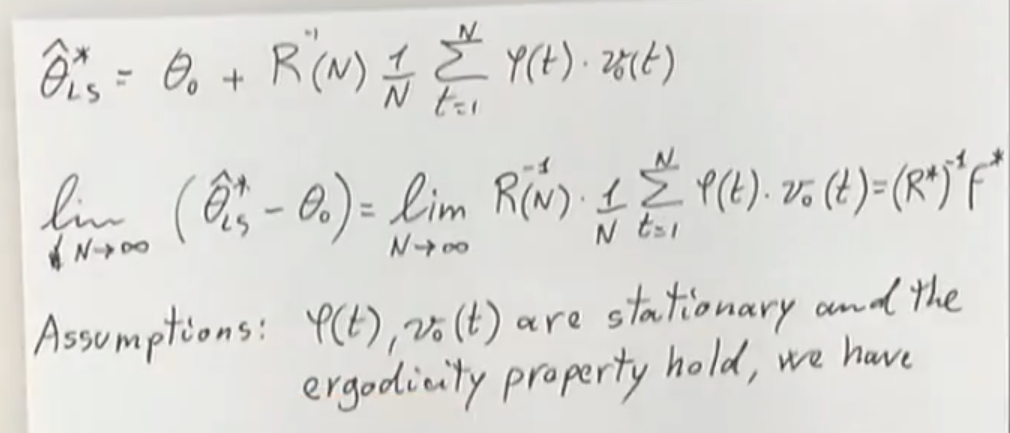 θ̂*_LS = θ₀ + R⁻¹(N) 1/N Σ_{t=1}^{N} φ(t) · v₀(t)
lim_{N→∞} (θ̂*_LS - θ₀) = lim_{N→∞} R(N)⁻¹ · 1/N Σ_{t=1}^{N} φ(t) · v₀(t) = (R*)⁻¹ f*
Assumptions: φ(t), v₀(t) are stationary and the
ergodicity property hold, we have